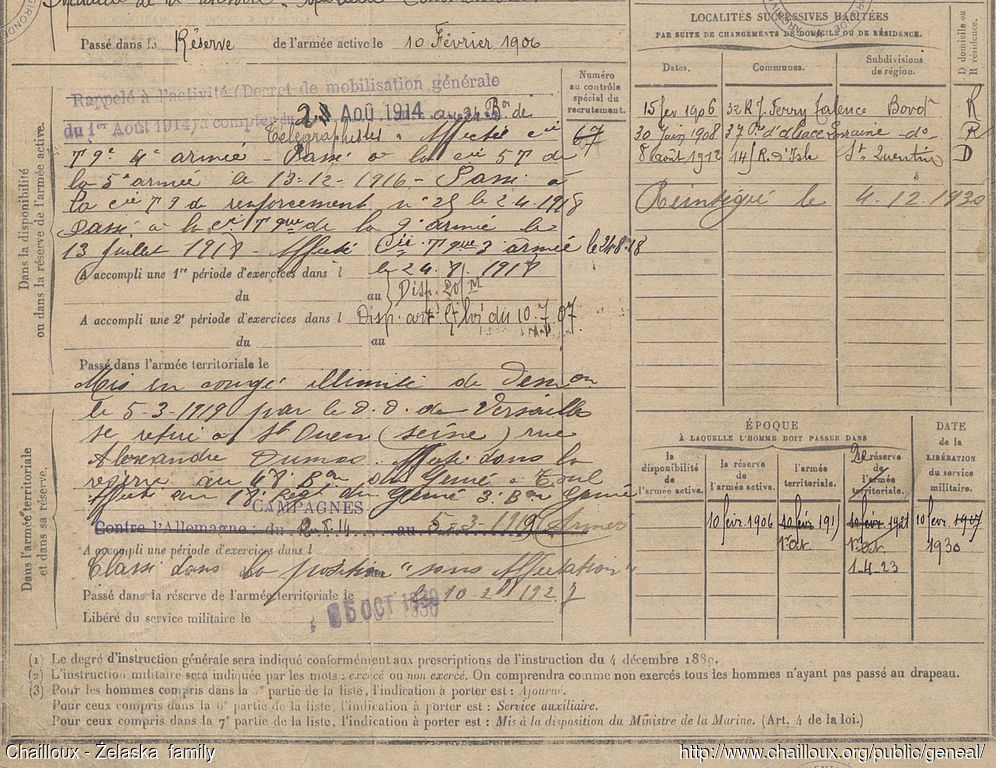 Passé dans la Réserve de l'armée active le 10 Février 1906
Rappelé à l'activité (Décret de mobilisation générale
du 1er Août 1914) à compter du 2 AOÛ 1914 au 24 Bon de
Télégraphistes. Affecté cie
T 9e 4e armée - Passé à la cie 5T de
la 5e armée le 13-12-1916 - Passé à
la cie T 9 de renforcement n° 28 le 2.4.1918
Passé à la Cie Tque de la 9e armée le
13 Juillet 1918 - Affecté Cie Tque 3 armée le 24.8.18
A accompli une 1re période d'exercices dans l
le 24.8.1918
du au Disp.
A accompli une 2e période d'exercices dans l Disp. art. loi du 10.7.07
du au
Passé dans l'armée territoriale le
Mis en congé illimité de Démon
le 5-3-1919 par le D.D. de Versailles
se retire à St Ouen (Seine) rue
Alexandre Dumas. Affecté dans la
réserve au Bon du Génie à Toul
Affecté au 18e Régt du Génie 3e Bon Génie
CAMPAGNES
Contre l'Allemagne : du 2.8.14 au 5-3-1919 (Armées
A accompli une période d'exercices dans l
Classé dans la position "sans affectation"
Passé dans la réserve de l'armée territoriale le
Libéré du service militaire le
Dans la disponibilité
ou dans la réserve de l'armée active.
Dans l'armée territoriale
et dans sa réserve.
Numéro
au contrôle
spécial du
recrutement.
67
LOCALITÉS SUCCESSIVES HABITÉES
PAR SUITE DE CHANGEMENTS DE DOMICILE OU DE RÉSIDENCE.
Dates. Communes. Subdivisions
de région.
D domicile ou
R résidence.
15 fév 1906 32 R J. Ferry Talence Bordx R
30 Juin 1908 37 d'alsace Lorraine do R
8 Août 1912 14 R. d'Isle St Quentin D
Réintégré le 4.12.1930
ÉPOQUE
À LAQUELLE L'HOMME DOIT PASSER DANS
la
disponibilité
de
l'armée active.
la réserve
de
l'armée active.
l'armée
territoriale.
la réserve
de
l'armée
territoriale.
DATE
de la
LIBÉRATION
du service
militaire.
10 fév. 1906 10 fév 191 10 fév. 1921 10 fév. 1917
1er Oct. 1er Oct. 1930
1.4.23
(1) Le degré d'instruction générale sera indiqué conformément aux prescriptions de l'instruction du 4 décembre 1889.
(2) L'instruction militaire sera indiquée par les mots : exercé ou non exercé. On comprendra comme non exercés tous les hommes n'ayant pas passé au drapeau.
(3) Pour les hommes compris dans la 5e partie de la liste, l'indication à porter est : Ajourné.
Pour ceux compris dans la 6e partie de la liste, l'indication à porter est : Service auxiliaire.
Pour ceux compris dans la 7e partie de la liste, l'indication à porter est : Mis à la disposition du Ministre de la Marine. (Art. 4 de la loi.)
Chailloux - Żelaska family
http://www.chailloux.org/public/geneal/